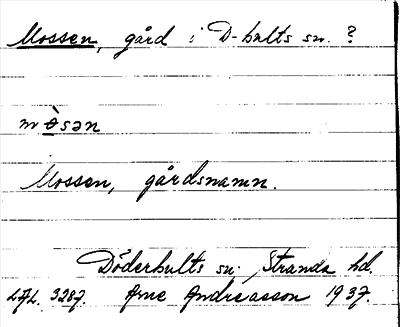 Mossen, gård i D-hults sn. ?
mòsən
Mossen, gårdsnamn.
Döderhults sn. Stranda hd.
LAL. 3287. Arne Andreasson 1937.